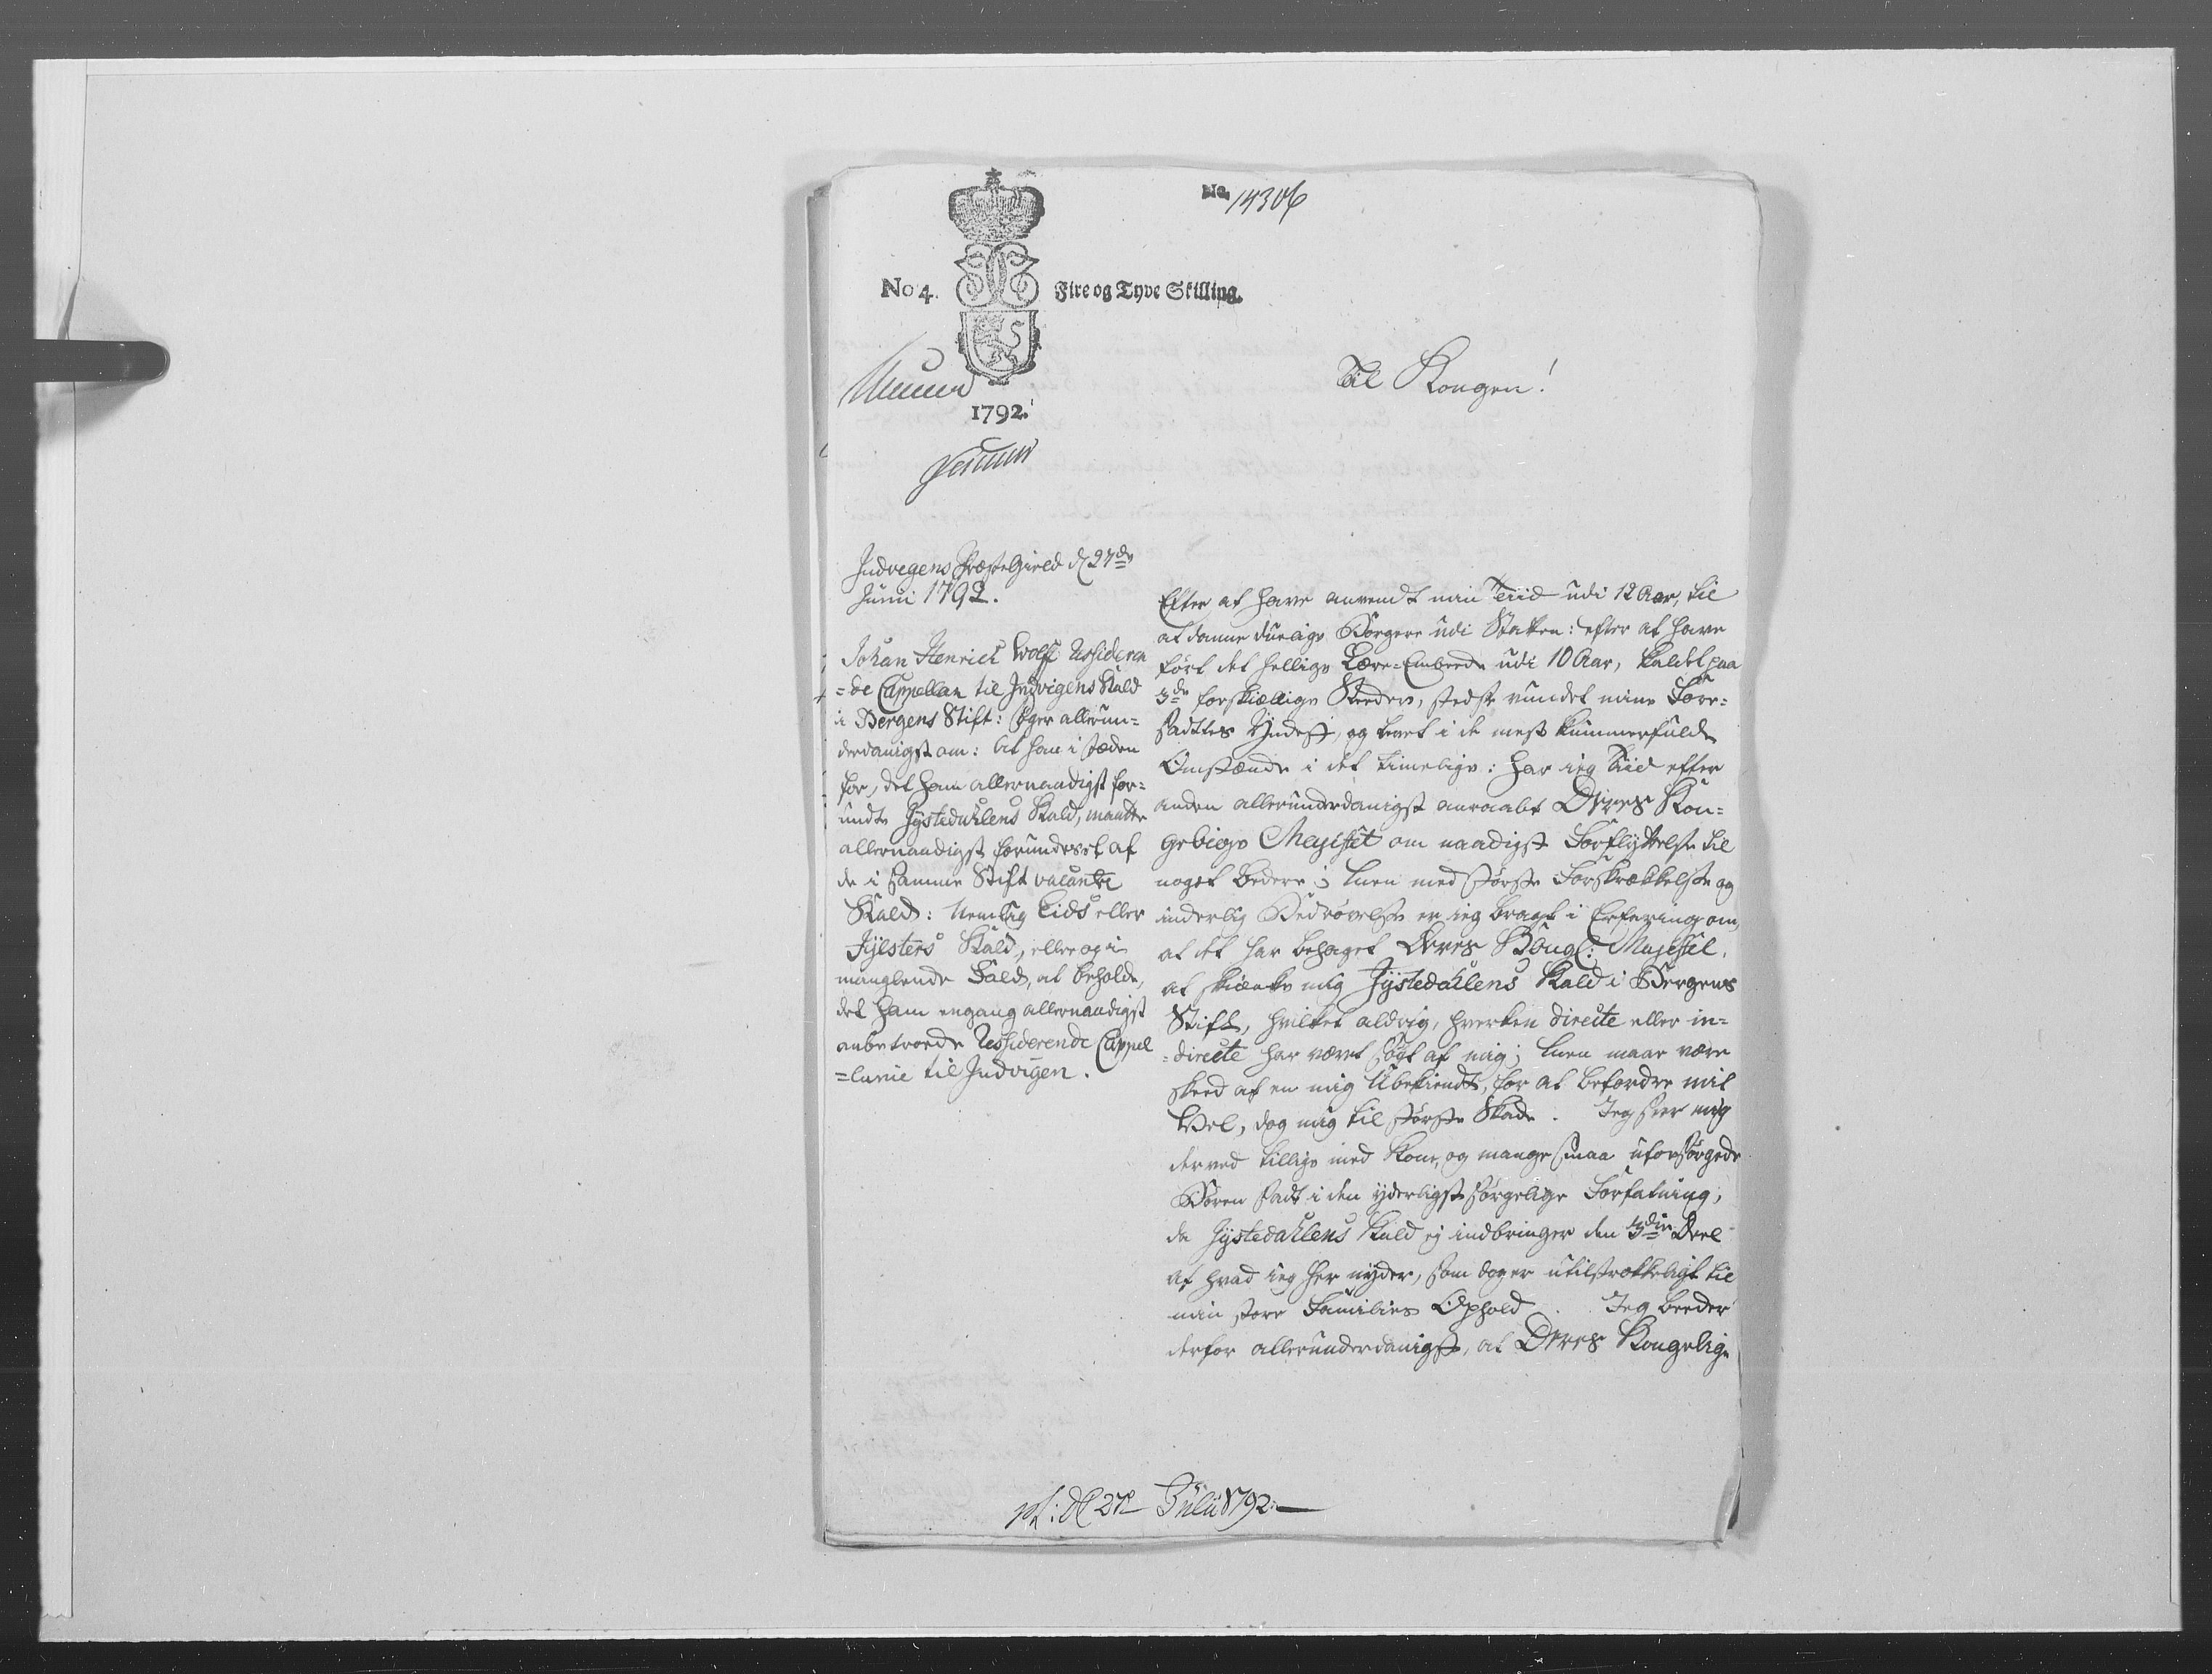 No. 14306
No 4. Fire og Tyve Skilling.
1792.
Til Kongen!
Indvigens Præstegield d 27de
Junii 1792.
Johan Henrich Wolff Resideren
=de Cappellan til Indvigens Kald
i Bergens Stift: søger allerun=
derdanigst om: At han i steden
for, det ham allernaadigst for=
undte Jystedahlens Kald, maatte
allernaadigst forundes et af
de i samme Stift vacante
Kald: Nemlig Eids eller
Jylsters Kald, eller og i
manglende Fald, at beholde,
det ham engang allernaadigst
anbetroede Residerende Cappel
=lanie til Indvigen.
Efter at have anvendt min Tiid udi 12 Aar, til
at danne duelige Borgere udi Staten: efter at have
ført det hellige Lære=Embede udi 10 Aar, kaldet paa
3de forskiellige Steder, stedse vundet mine Fore=
sadttes Yndest, og levet i de mest kummerfulde
Omstænde i det timelige: har ieg Tiid efter
anden allerunderdanigst anraabt Deres Kon=
gelige Majestet om naadigst Forflyttelse til
noget bedere; Men med største Forskrækkelse og
inderlig Bedrøvelse er ieg bragt i Erfaring om,
at det har behaget Deres Kongl: Majestet.
at skienke mig Jystedahlens Kald i Bergens
Stift, hvilket aldrig, hverken directe eller in=
=directe har været søgt af mig; Men maae være
skeed af en mig Ubekiendt, for at befordre mit
Vel, dog mig til største Skade. Jeg seer mig
derved tillige med Kone, og mange smaa uforsørgede
Børen sadt i den yderligst sørgelige Forfatning,
da Jystedahlens Kald ej indbringer den 3die Deel
af hvad ieg her nyder, som dog er utilstrækkeligt til
min store Families Ophold. Jeg beeder
derfor allerunderdanigst, at Deres Kongelige
d 27 Julii 1792.